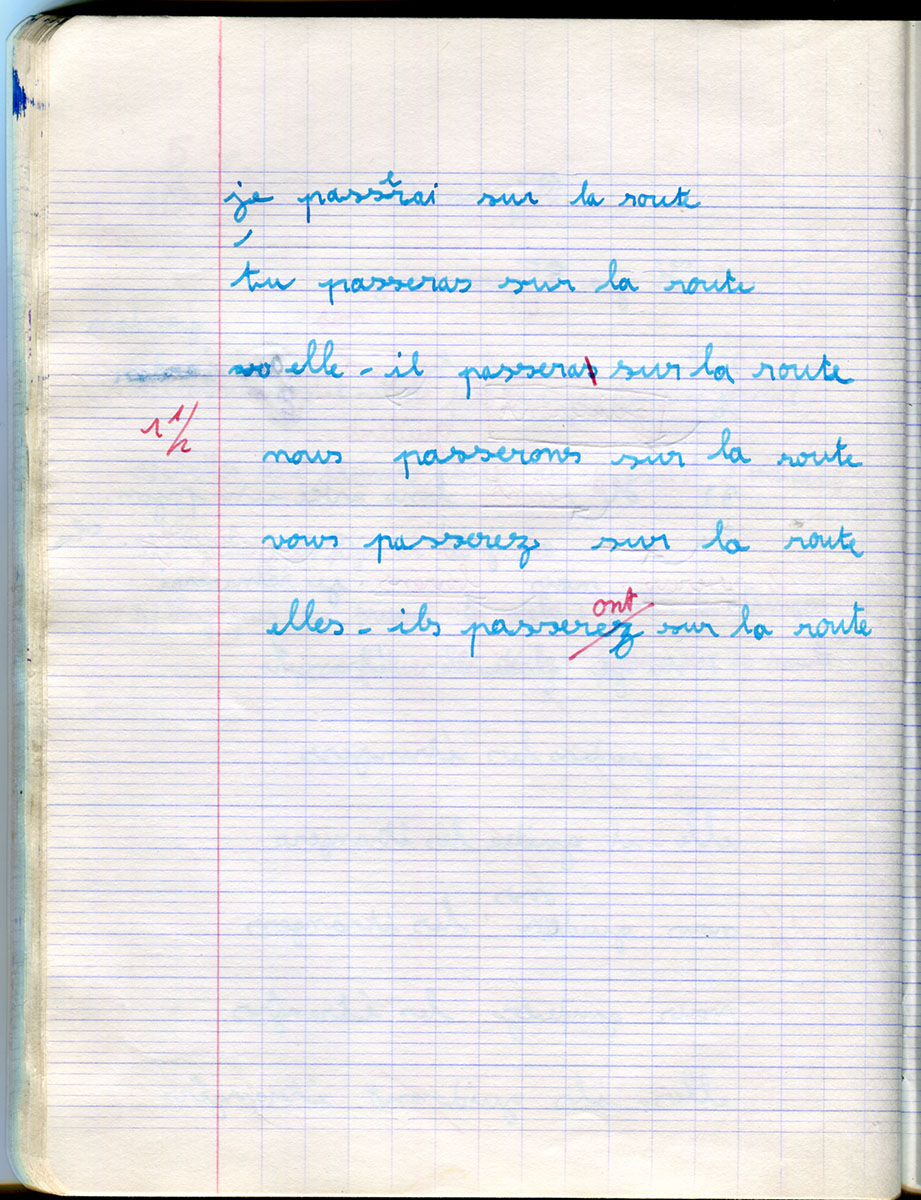 je passerai sur la route
tu passeras sur la route
elle - il passera sur la route
1 1/2
nous passerons sur la route
vous passerez sur la route
ont
elles - ils passerez sur la route